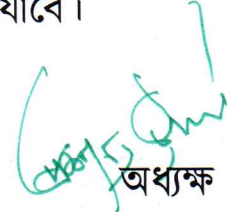 যাবে।
অধ্যক্ষ